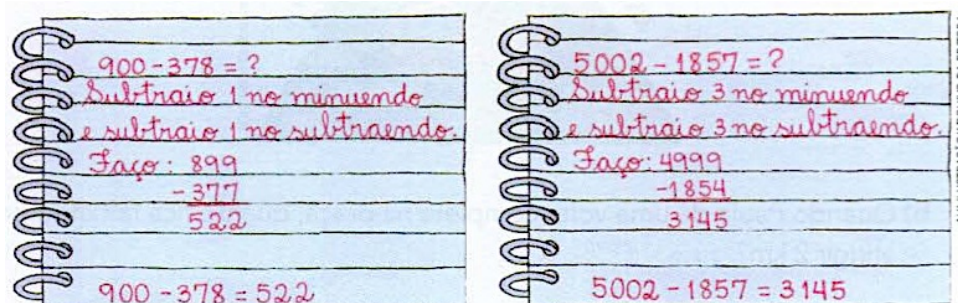 900 - 378 = ?
Subtraio 1 no minuendo
e subtraio 1 no subtraendo.
Faço: 899
-377
522
900 - 378 = 522
5002 - 1857 = ?
Subtraio 3 no minuendo
e subtraio 3 no subtraendo.
Faço: 4999
-1854
3145
5002 - 1857 = 3145